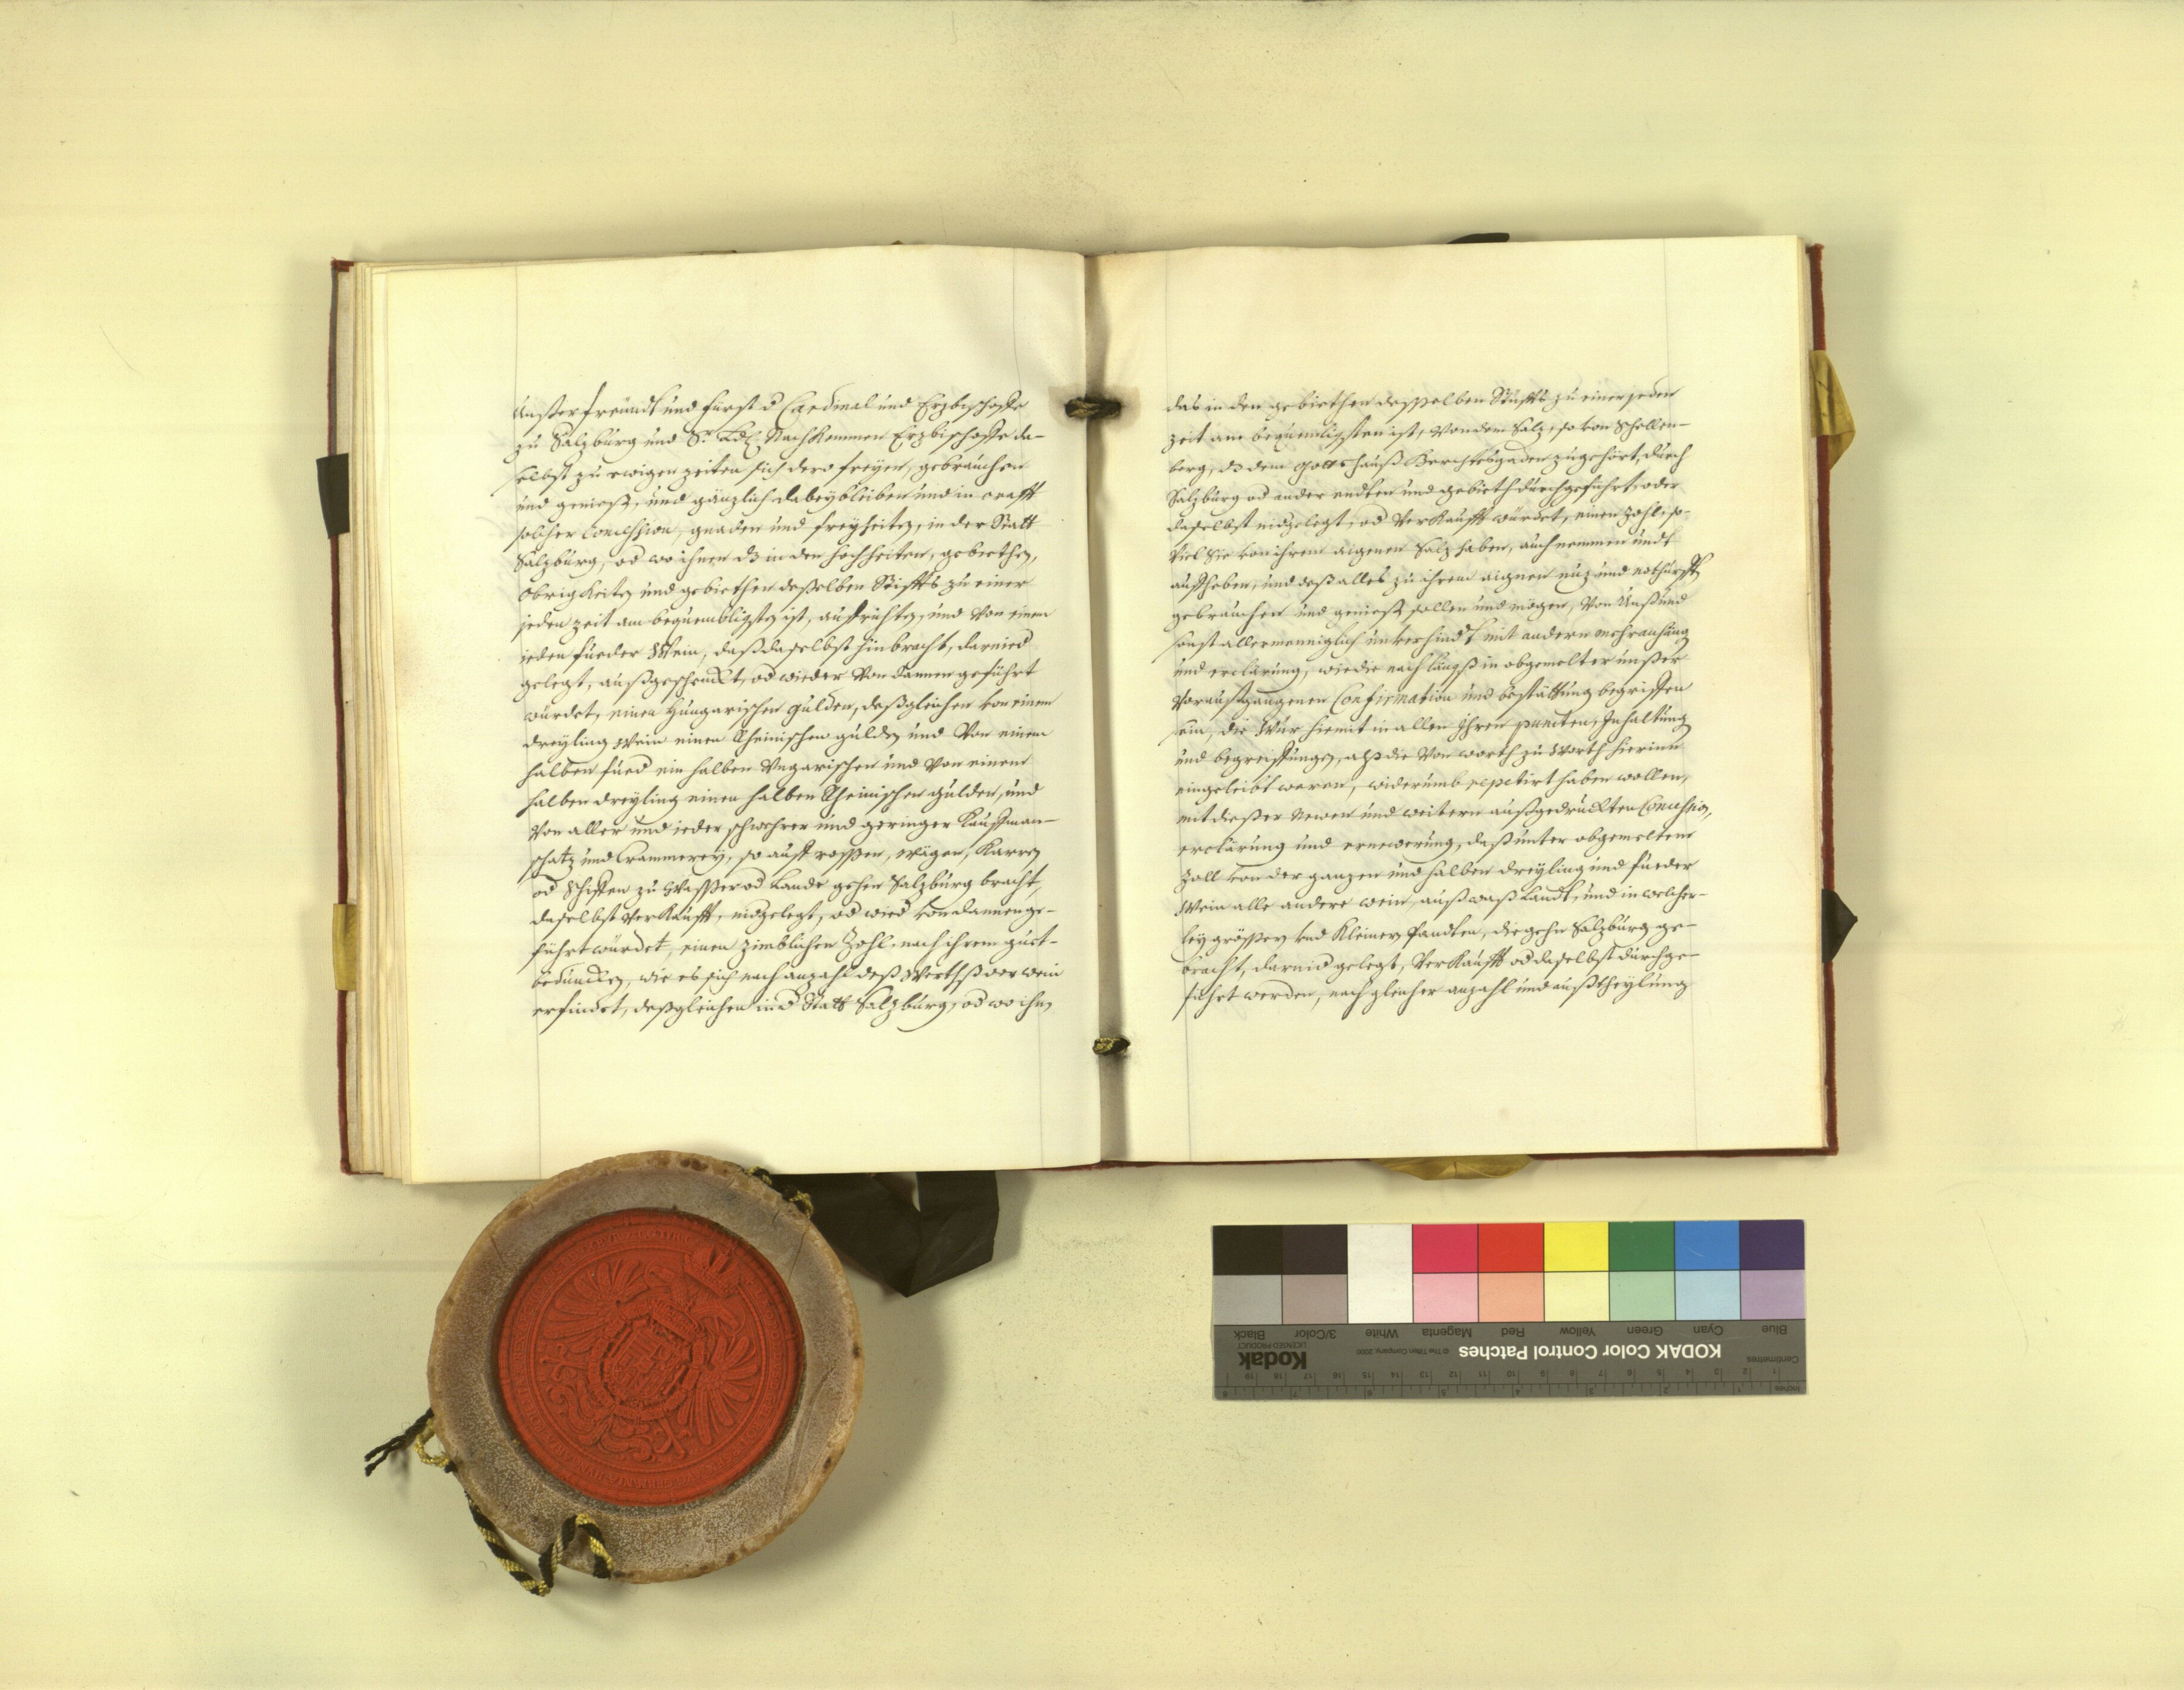 Unßer freündt und fürst d Cardinal und Erzbischoffe
zu Salzburg und Sr. Ld. Nachkommen Erzbischoffe da-
selbst zu ewigen zeiten sich dero freyen, gebrauchen
und genießen, und gänzlich dabey bleiben und in crafft
solcher Concession, gnaden und freyheiten, in der Statt
Salzburg, od wo ihnen dz in den hochheiten, gebiethen,
Obrigkeiten und gebiethen deßelben Stiffts zu einer
jeden zeit am bequemblichsten ist, auffrichten, und von einem
jeden fueder Wein, daß daselbst hinbracht, darnied
gelegt, außgeschenckt, od wieder von dannen geführt
würdet, einen Hungarischen gulden, deßgleichen von einem
dreyling Wein einen Rheinischen gulden und von einem
halben fued ein halben Vngarischen und von einem
halben dreyling einen halben Rheinischen gulden, und
von aller und ieder schwehrer und geringer Kauffman-
schatz und Crammerey, so auff rossen, wägen, Karren
od Schiffen zu Wasser od Lande gehen Salzburg bracht,
daselbst verkaufft, nidgelegt, od wied von dannen ge-
führt würdet, einen zimblichen Zohl, nach ihrem guet-
beduncken, wie es sich nach anzahl deß Werthß der wein
erfindet, deßgleichen in d Statt Salzburg, od wo ihn
das in den gebiethen desselben Stiffts zu einer jeden
zeit am bequemlichsten ist, von dem Salz, so von Schellen-
berg, dz dem Gottshauß Berchtesgaden zugehört, durch
Salzburg od ander endten und gebieth durchgeführt, oder
daselbst nidgelegt, od verkaufft würdet, einen Zohl, so-
viel Sie von ihrem aignen Salz haben, auch nemmen undt
auffheben, und deß alles zu ihrem aignen nuz und nothurfft
gebrauchen und genießen sollen und mögen, von Unß und
sonst allermenniglich unverhindt mit andern mehr anhang
und erclärung, wie die nach längß in obgemelter unßer
voraußgangenen Confirmation und bestättung begriffen
sein, die Wür hiemit in allen Ihren puncten, Inhaltung
und begreiffungen, alß die von worth zu Worth hierinn
eingeleibt weren, widerumb repetirt haben wollen,
mit dießer Newen und weitern außgedruckten Concession,
erclärung und ernewerung, daß unter obgemeltem
Zoll von der ganzen und halben dreyling und fueder
Wein alle andere wein, auß waß Landt, und in welcher-
ley grössen und Kleinen Pandten, die gehn Salzburg ge-
bracht, darnid gelegt, verkaufft od daselbst durchge-
führt werden, nach gleicher anzahl und außtheylung
KODAK Color Control Patches
© The Tiffen Company, 2000
Kodak
LICENSED PRODUCT
Blue Cyan Green Yellow Red Magenta White 3/Color Black
Centimetres
Inches